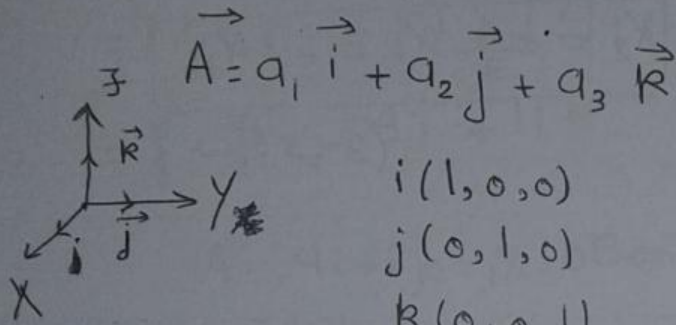 A⃗ = a₁ i⃗ + a₂ j⃗ + a₃ k⃗
z
k⃗
Y
j⃗
i
X
i(1,0,0)
j(0,1,0)
k(0,0,1)